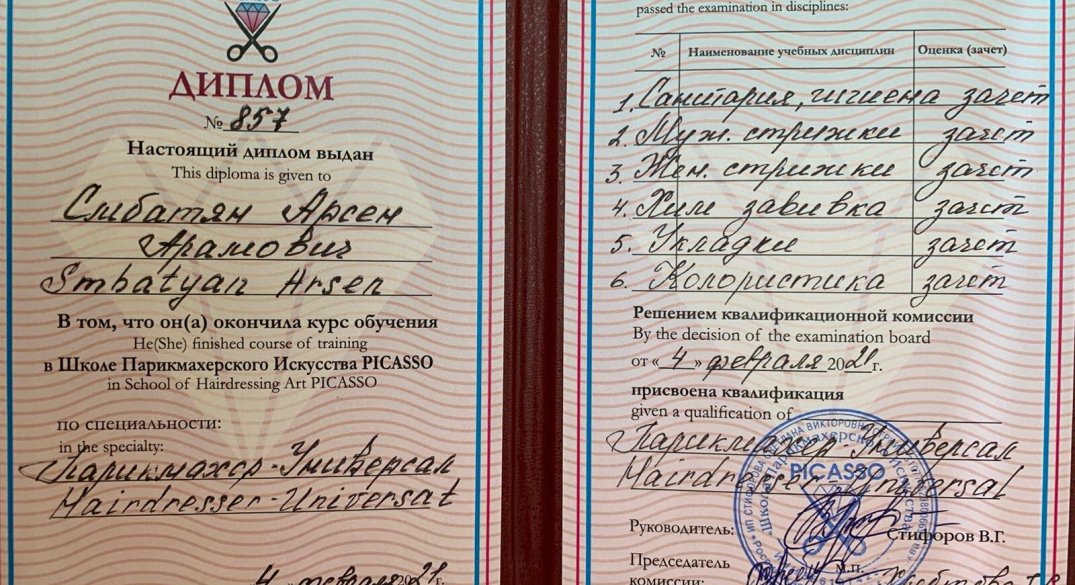 ДИПЛОМ
№ 857
Настоящий диплом выдан
This diploma is given to
Смбатян Арсен
Арамович
Smbatyan Arsen
В том, что он(а) окончила курс обучения
He(She) finished course of training
в Школе Парикмахерского Искусства PICASSO
in School of Hairdressing Art PICASSO
по специальности:
in the specialty:
Парикмахер-Универсал
Hairdresser-Universal
4 » февраля 2021 г.
passed the examination in disciplines:
№ Наименование учебных дисциплин Оценка (зачет)
1. Санитария, гигиена зачет
2. Муж. стрижки зачет
3. Жен. стрижки зачет
4. Хим завивка зачет
5. Укладки зачет
6. Колористика зачет
Решением квалификационной комиссии
By the decision of the examination board
от « 4 » февраля 2021 г.
присвоена квалификация
given a qualification of
Парикмахер-Универсал
Hairdresser Universal
PICASSO
Руководитель: Стифоров В.Г.
Председатель
комиссии: М.П.